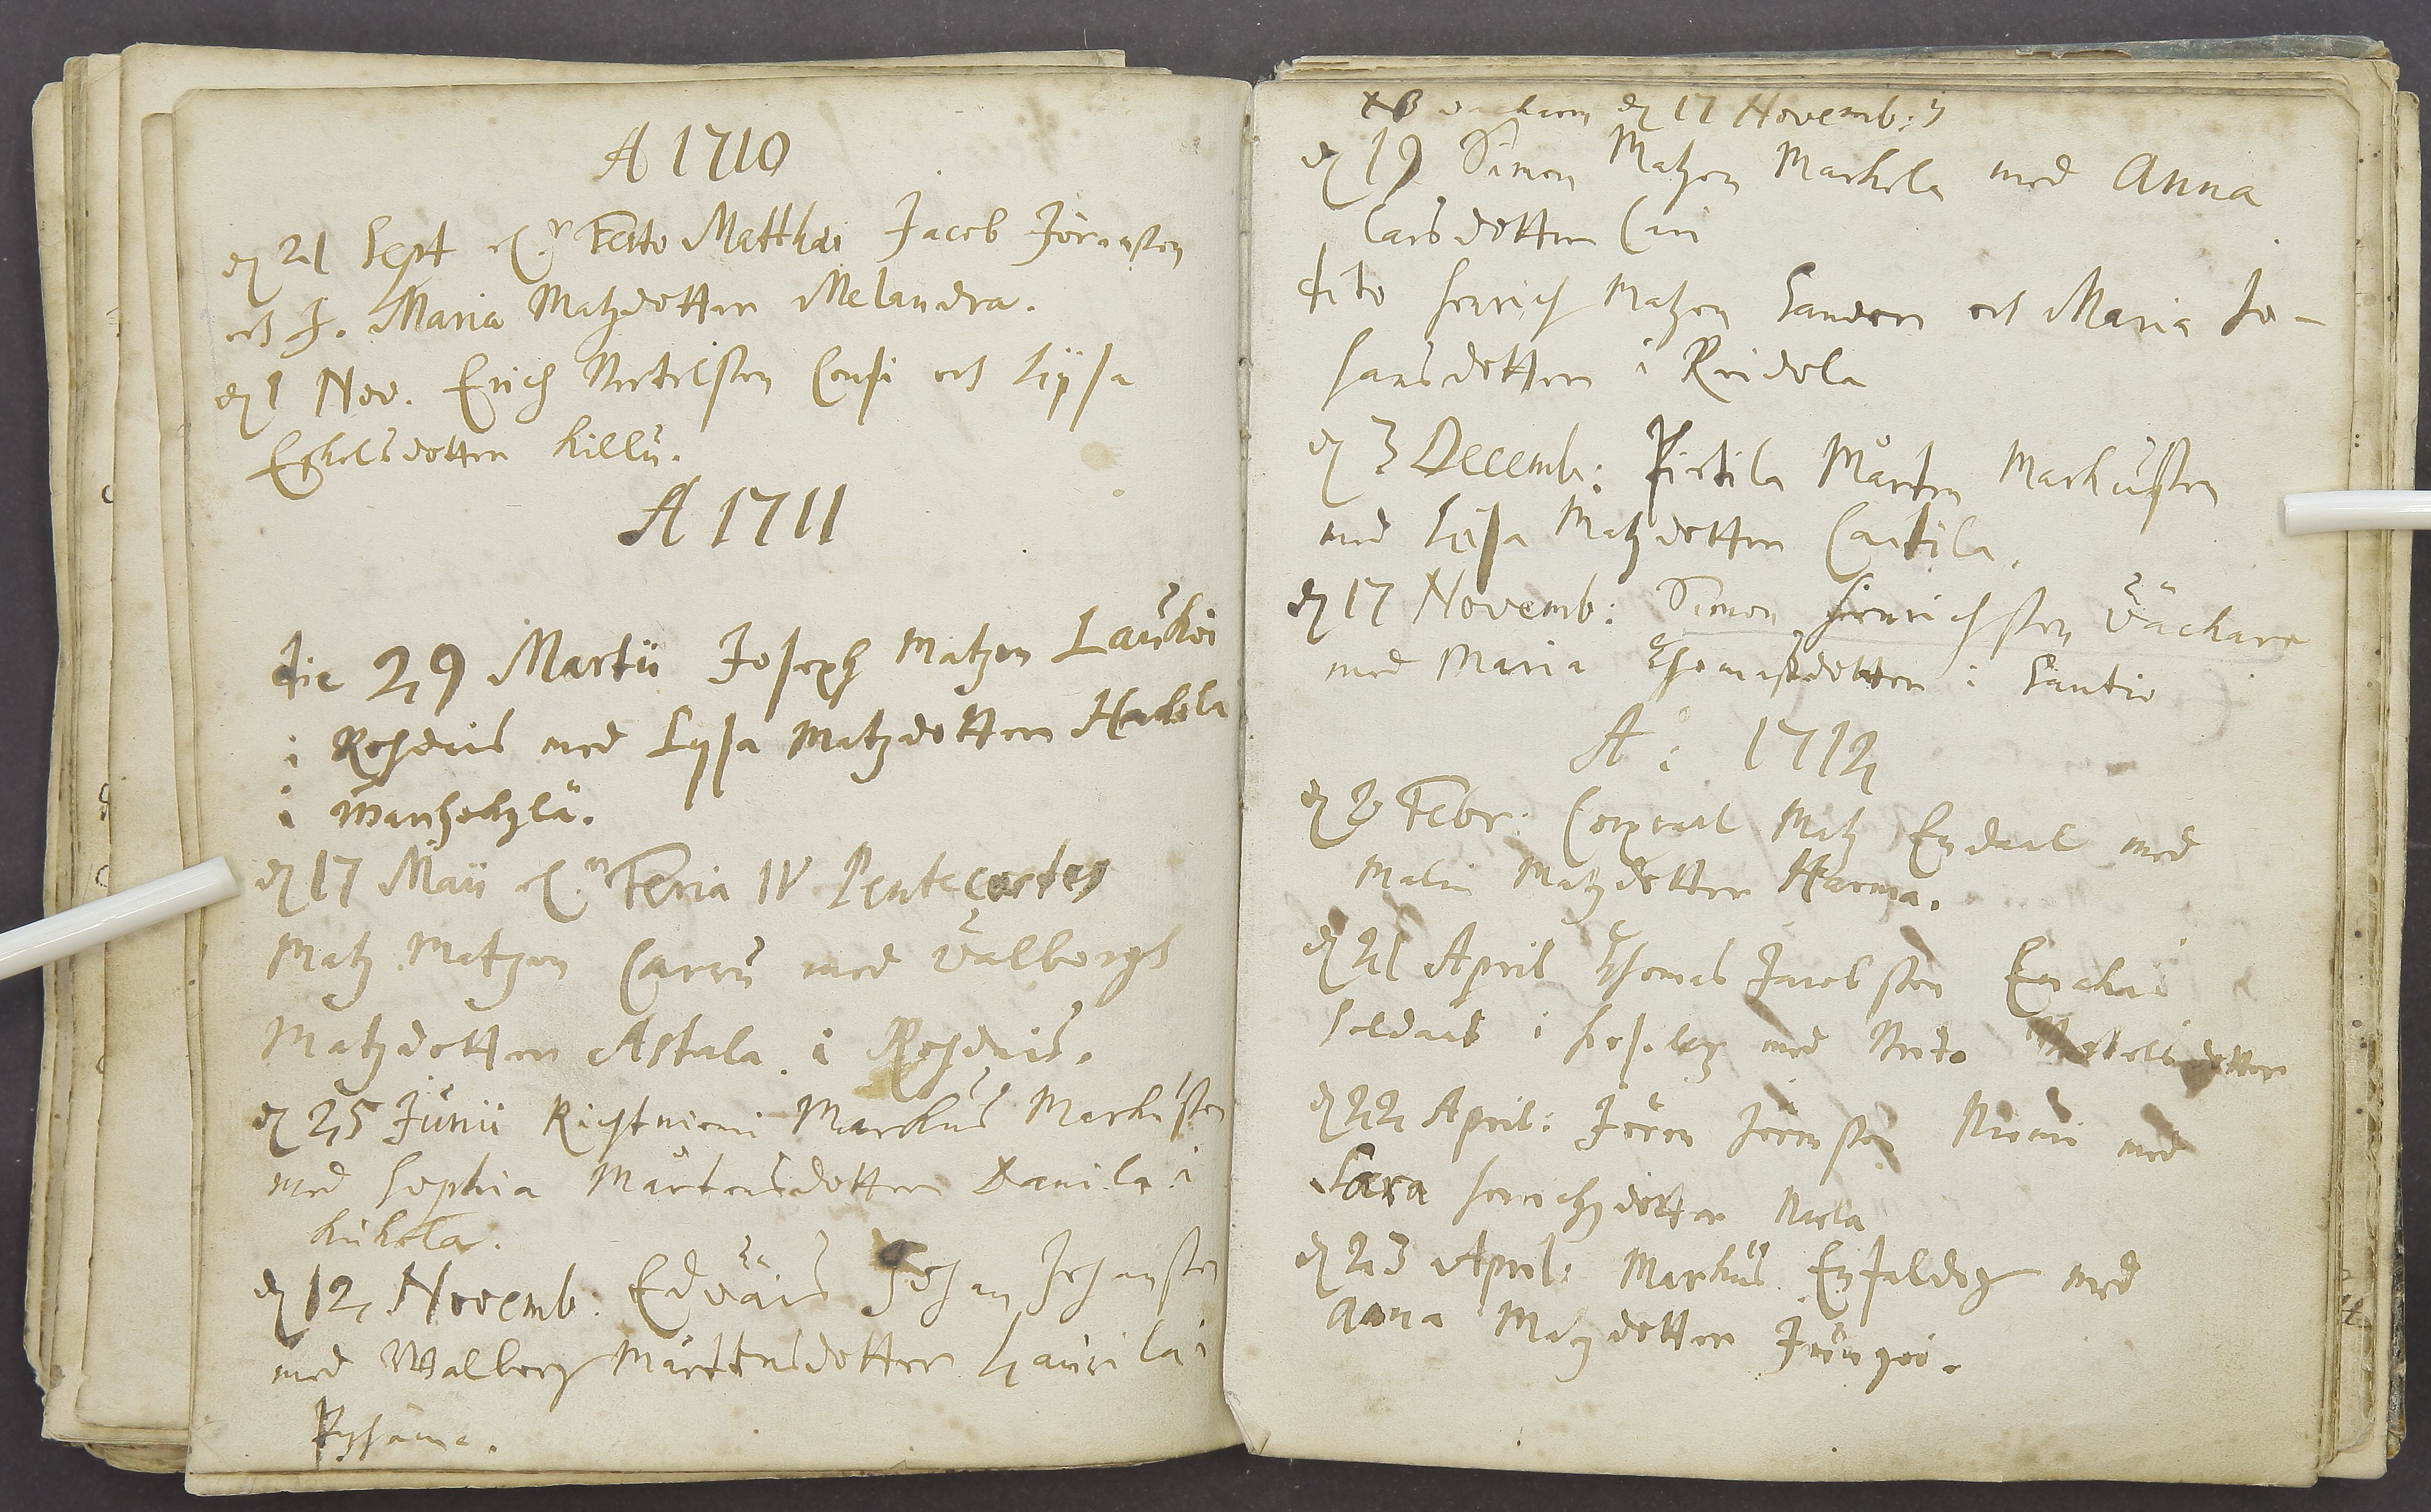 A 1710
d 21 Sept Festo Matthæi Jacob Jöransson
och J. Maria Matzdotter Melandra.
d 1 Nov. Erich Bertelsson Consi och Lijsa
Eskelsdotter Killu.
A 1711
die 29 Martii Joseph Matzon Laukoi
i Rohduis med Lysa Matzdotter Hakola
i Wanhakylä.
d 17 Maii Feria IV Pentecostes
Matz Matzon Carru med Valborgh
Matzdotter Astala i Rohduis.
d 25 Junii Richtniemi Markus Markusson
med Sophia Mårtensdotter Danila i
Kukola.
d 12 Novemb: Edväis Johan Johansson
med Walborg Mårttensdotter Laurila i
Pyhäma.
NB Vackara d 17 Novemb:
d 19 Simon Matzon Markola med Anna
Larsdotter Cari
dito Henrich Matzon Sander och Maria Jo-
hansdotter i Reidola
d 3 Decemb: Pietila Mårten Markusson
med Lijsa Matzdotter Cautila.
d 17 Novemb: Simon Henrichsson Väckara
med Maria Thomasdotter i Santio
A: 1712
d 2 Febr: Corporal Matz Endaal med
Malin Matzdotter Harma.
d 21 April Thomas Jacobsson
Soldat i med Brita Bertelsdotter
d 22 April: Jören Jörensson Niemi med
Sara Henrichzdotter Nirla
d 23 April: Markus Enfaldig med
Anna Matzdotter